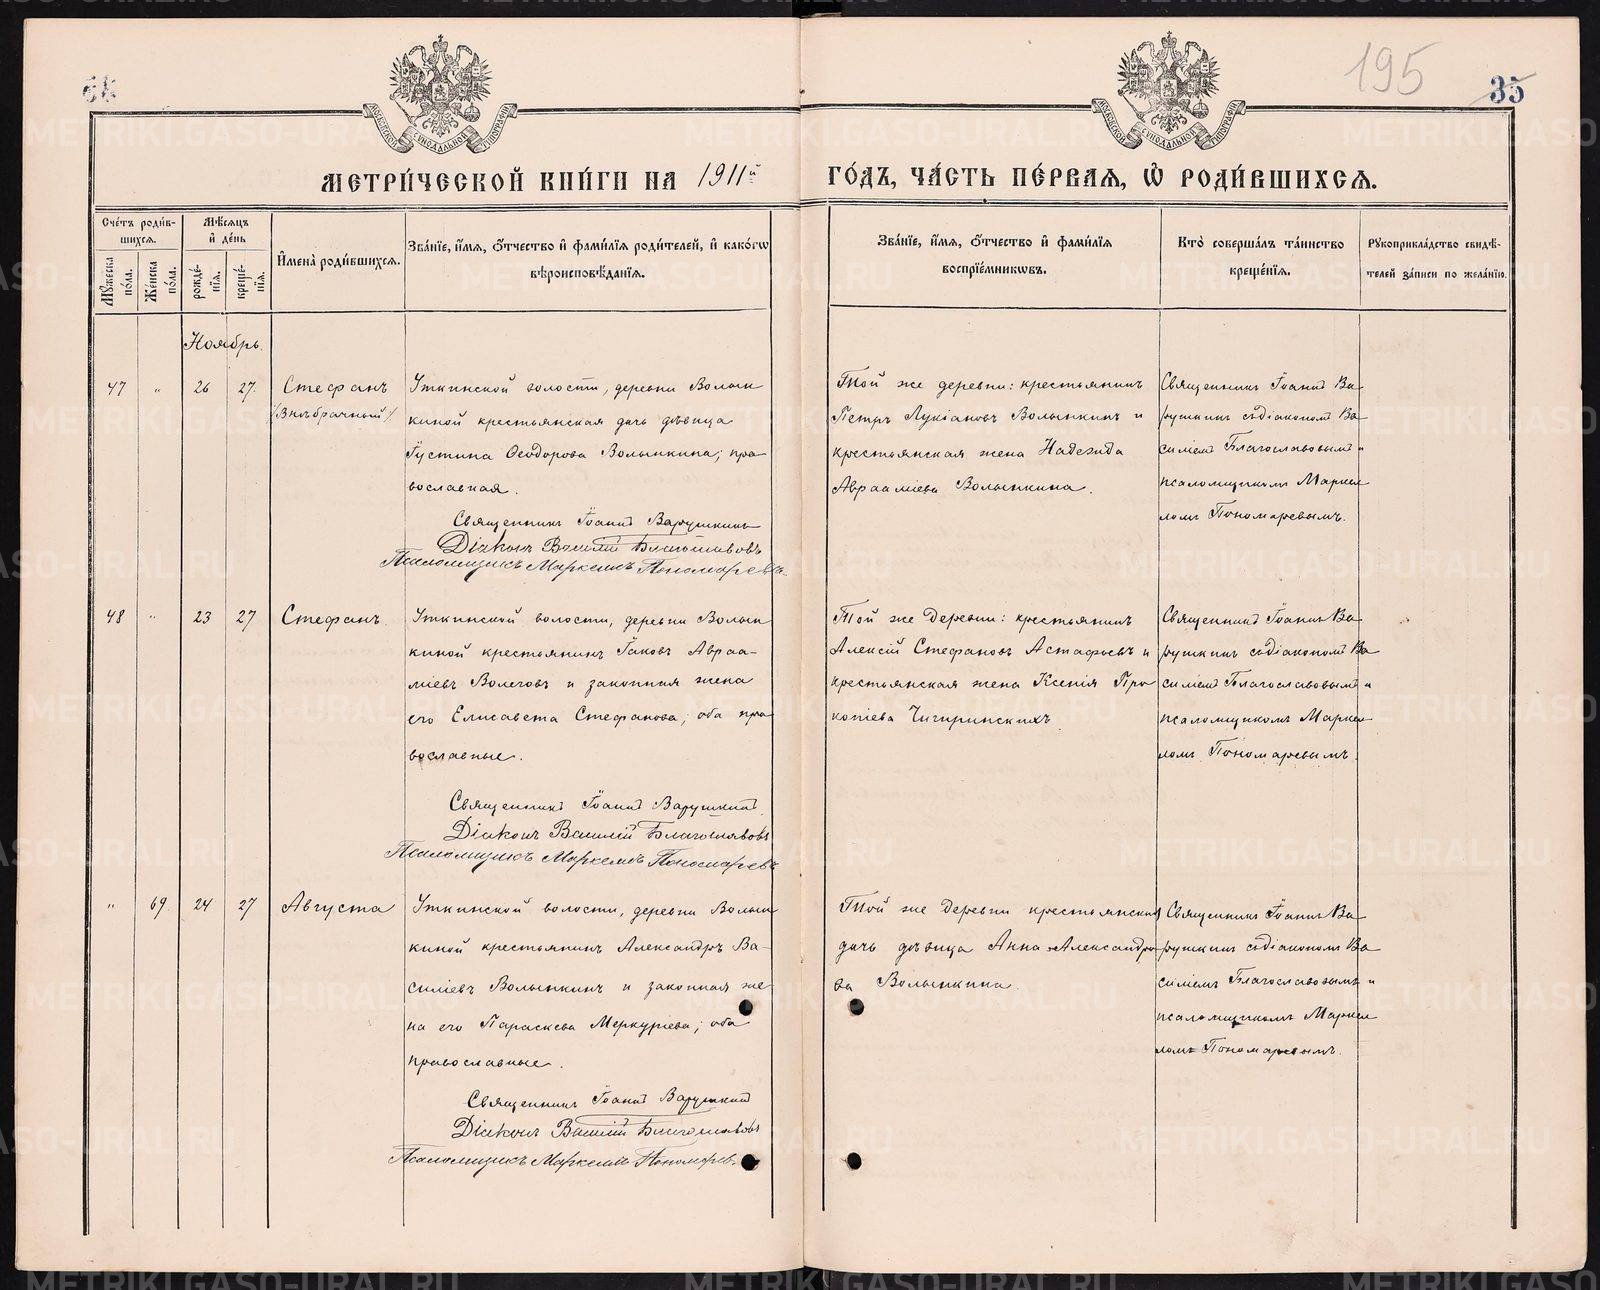 195
35
МОСКОВСКОЙ СѴНОДАЛЬНОЙ ТИПОГРАФІИ
МОСКОВСКОЙ СѴНОДАЛЬНОЙ ТИПОГРАФІИ
МЕТРИ́ЧЕСКОЙ КНИ́ГИ НА 1911й
ГО́ДЪ, ЧА́СТЬ ПЕ́РВАѦ, Ѡ҆ РОДИ́ВШИХСѦ.
Сче́тъ роди́в-
шихсѧ.
Мꙋ́жеска по́ла.
Же́нска по́ла.
Мѣ́сѧцъ
и҆ де́нь
рожде́-
нїѧ.
креще́-
нїѧ.
И҆мена̀ роди́вшихсѧ.
Зва́нїе, и҆́мѧ, ѻ҆́тчество и҆ фами́лїѧ роди́телей, и҆ како́гѡ
вѣроисповѣ́данїѧ.
Зва́нїе, и҆́мѧ, ѻ҆́тчество и҆ фами́лїѧ
воспрїе́мникѡвъ.
Кто̀ соверша́лъ та́инство
креще́нїѧ.
Рꙋкоприкла́дство свидѣ́-
телей за́писи по жела́нїю.
Ноябрь.
47 " 26 27.
Стефанъ
/Внѣбрачный/
Уткинской волости, деревни Волын
киной крестьянская дочь дѣвица
Іустина Ѳеодорова Волынкина; пра
вославная.
Священникъ Іоаннъ Варушкинъ
Діаконъ Василій Благославовъ
Псаломщикъ Маркеллъ Пономаревъ.
Той же деревни: крестьянинъ
Петръ Лукіановъ Волынкинъ и
крестьянская жена Надежда
Авраамiева Волынкина.
Священникъ Іоаннъ Ва-
рушкинъ съ діакономъ Ва-
силіемъ Благославовымъ и
псаломщикомъ Маркел
ломъ Пономаревымъ.
48 " 23 27
Стефанъ.
Уткинской волости, деревни Волын
киной крестьянинъ Іаковъ Авраа-
міевъ Волеговъ и законная жена
его Елисавета Стефанова; оба пра
вославные.
Священникъ Іоаннъ Варушкинъ
Діаконъ Василій Благославовъ
Псаломщикъ Маркеллъ Пономаревъ
Той же деревни: крестьянинъ
Алексій Стефановъ Астафьевъ и
крестьянская жена Ксенія Про
копіева Чигиринскихъ
Священникъ Іоаннъ Ва-
рушкинъ съ діакономъ Ва
силіемъ Благославовымъ и
псаломщикомъ Маркел
ломъ Пономаревымъ.
" 69 24 27
Августа
Уткинской волости, деревни Волын
киной крестьянинъ Александръ Ва-
силіевъ Волынкинъ и законная же-
на его Параскева Меркуріева; оба
православные.
Священникъ Іоаннъ Варушкинъ
Діаконъ Василій Благославовъ
Псаломщикъ Маркеллъ Пономаревъ.
Той же деревни крестьянская
дочь дѣвица Анна Александро-
ва Волынкина.
Священникъ Іоаннъ Ва-
рушкинъ съ діакономъ Ва
силіемъ Благославовымъ и
псаломщикомъ Маркел
ломъ Пономаревымъ.
METRIKI.GASO-URAL.RU